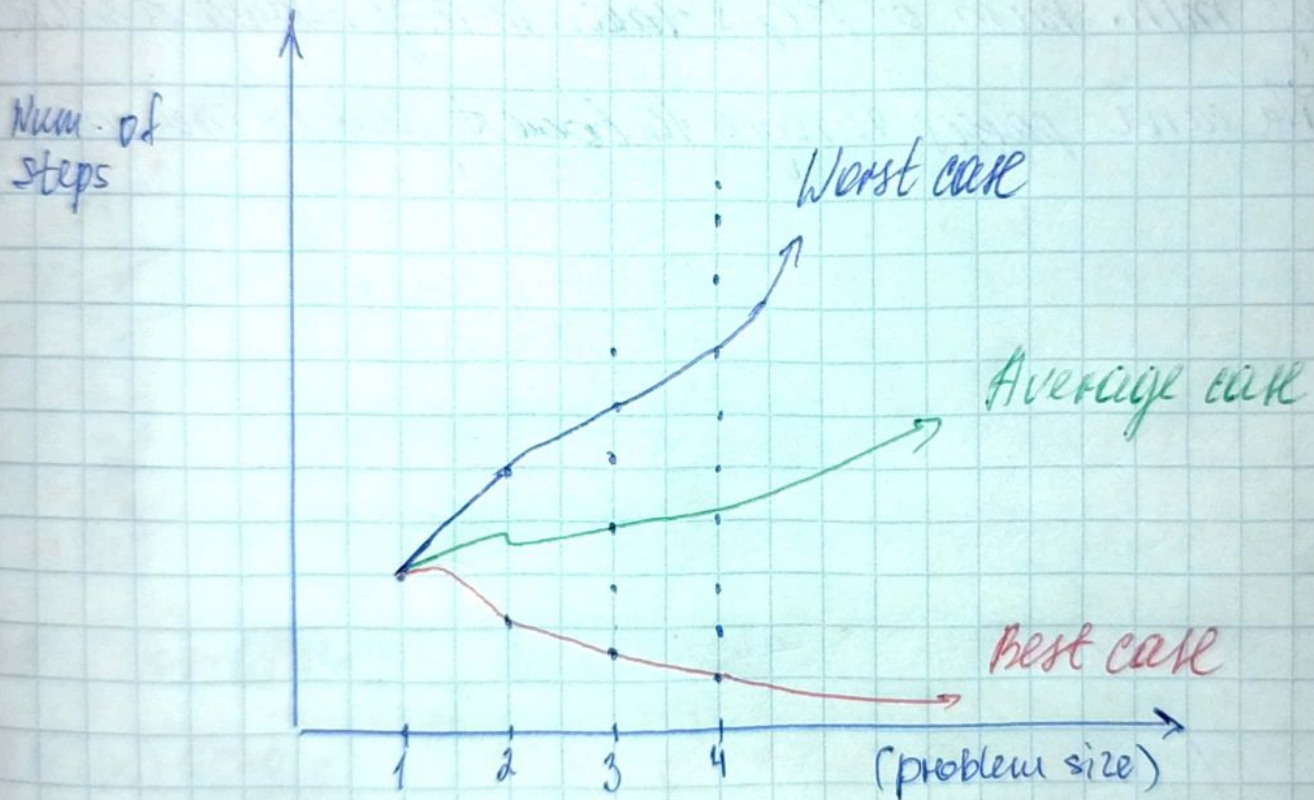 Num. of
steps
Worst case
Average case
Best case
1 2 3 4 (problem size)